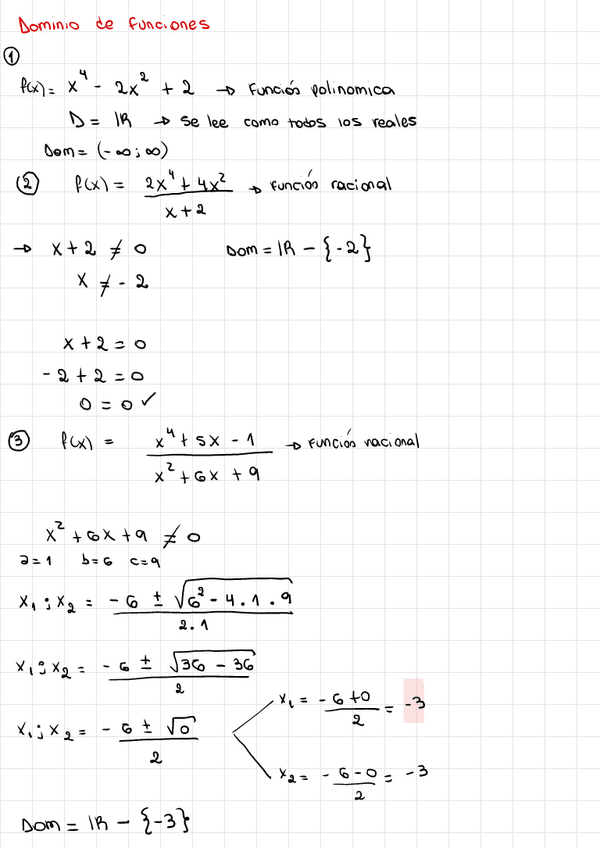 Dominio de funciones
①
f(x) = x⁴ - 2x² + 2 → Función polinomica
D = ℝ → se lee como todos los reales
Dom = (-∞; ∞)
② f(x) = (2x⁴ + 4x²)/(x + 2) → Función racional
→ x + 2 ≠ 0 Dom = ℝ - {-2}
x ≠ -2
x + 2 = 0
-2 + 2 = 0
0 = 0 ✓
③ f(x) = (x⁴ + 5x - 1)/(x² + 6x + 9) → Función racional
x² + 6x + 9 ≠ 0
a = 1 b = 6 c = 9
x₁ ; x₂ = (-6 ± √(6² - 4 . 1 . 9))/(2 . 1)
x₁ ; x₂ = (-6 ± √(36 - 36))/2
x₁ ; x₂ = (-6 ± √0)/2
x₁ = (-6 + 0)/2 = -3
x₂ = (-6 - 0)/2 = -3
Dom = ℝ - {-3}